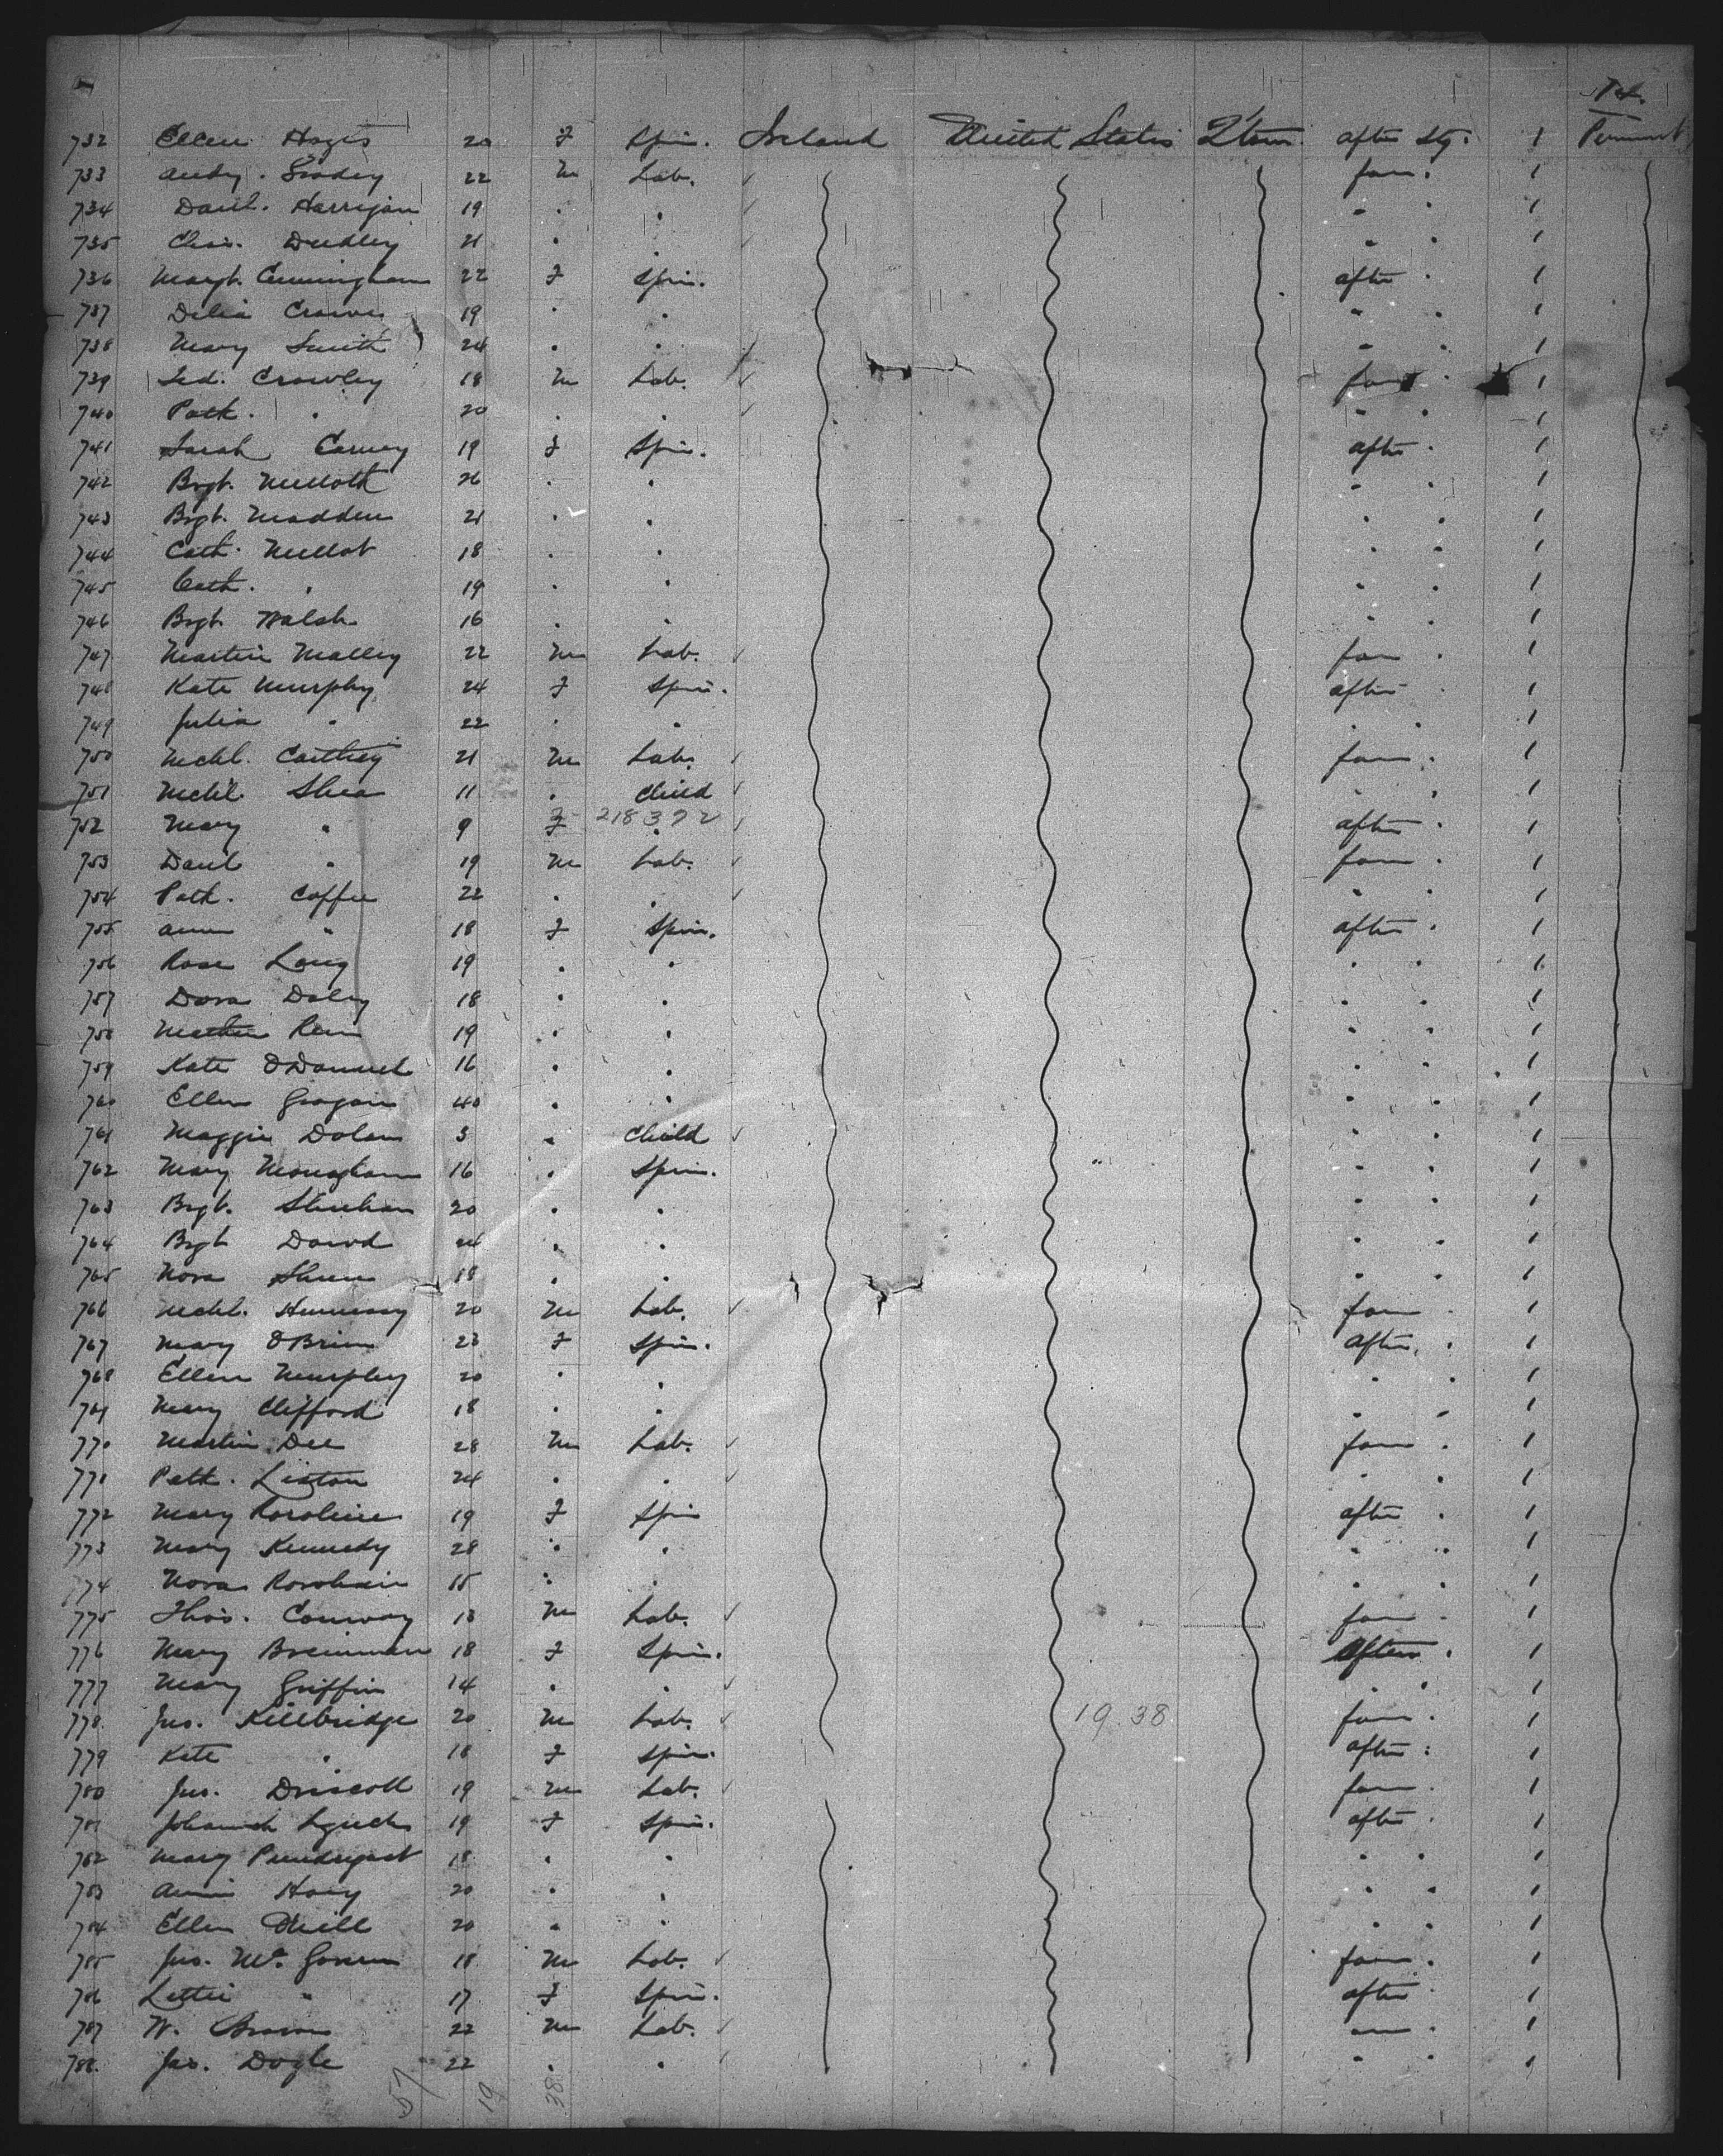 732 Ellen Hayes 20 F Spin. Ireland United States Q'town after Stg. 1 Permnt
733 Andy. 22 M Lab. fore. 1
734 Danl. Harrigan 19 " " " " 1
735 Chas. Dudley 21 " " " " 1
736 Margt. Cunningham 22 F Spin. after " 1
737 Delia 19 " " " " 1
738 Mary Smith 24 " " " " 1
739 Jed. Crowley 18 M Lab. fore " 1
740 Patk. " 20 " " " " 1
741 Sarah Carney 19 F Spin. after " 1
742 Bgt. 26 " " " " 1
743 Bgt. Madden 21 " " " " 1
744 Cath. 18 " " " " 1
745 Cath. " 19 " " " " 1
746 Bgt. Walsh 16 " " " " 1
747 Martin Malley 22 M Lab. fore " 1
748 Kate Murphy 24 F Spin. after " 1
749 Julia " 22 " " " " 1
750 Mchl. 21 M Lab. fore " 1
751 Mchl. Shea 11 " Child " " 1
752 Mary " 9 F 218372 " after " 1
753 Danl " 19 M Lab. fore " 1
754 Patk. Coffee 22 " " " " 1
755 Ann " 18 F Spin. after " 1
756 Rose Long 19 " " " " 1
757 Dora Daly 18 " " " " 1
758 19 " " " " 1
759 Kate 16 " " " " 1
760 Ellen Grogan 40 " " " " 1
761 Maggie Dolan 3 " Child " " 1
762 Mary Monaghan 16 " Spin. " " 1
763 Bgt. Sheehan 20 " " " " 1
764 Bgt Dowd 24 " " " " 1
765 Nora 18 " " " " 1
766 Mchl. Hennessy 20 M Lab. fore " 1
767 Mary O'Brien 23 F Spin. after " 1
768 Ellen Murphy 20 " " " " 1
769 Mary Clifford 18 " " " " 1
770 Martin Dee 28 M Lab. fore " 1
771 Patk. Liston 24 " " " " 1
772 Mary 19 F Spin after " 1
773 Mary Kennedy 28 " " " " 1
774 Nora 15 " " " " 1
775 Thos. Conway 18 M Lab. fore " 1
776 Mary 18 F Spin. after " 1
777 Mary Griffin 14 " " " " 1
778 Jno. Killbridge 20 M Lab. 19.38 fore " 1
779 Kate " 18 F Spin. after " 1
780 Jno. Driscoll 19 M Lab. fore " 1
781 Johannah Lynch 19 F Spin. after " 1
782 Mary 18 " " " " 1
783 Annie 20 " " " " 1
784 Ellen 20 " " " " 1
785 Jno. 18 M Lab. fore " 1
786 Lettie " 17 F Spin. after " 1
787 W. 22 M Lab. " 1
788. Jas. Doyle 22 " " " " 1
57 19 38